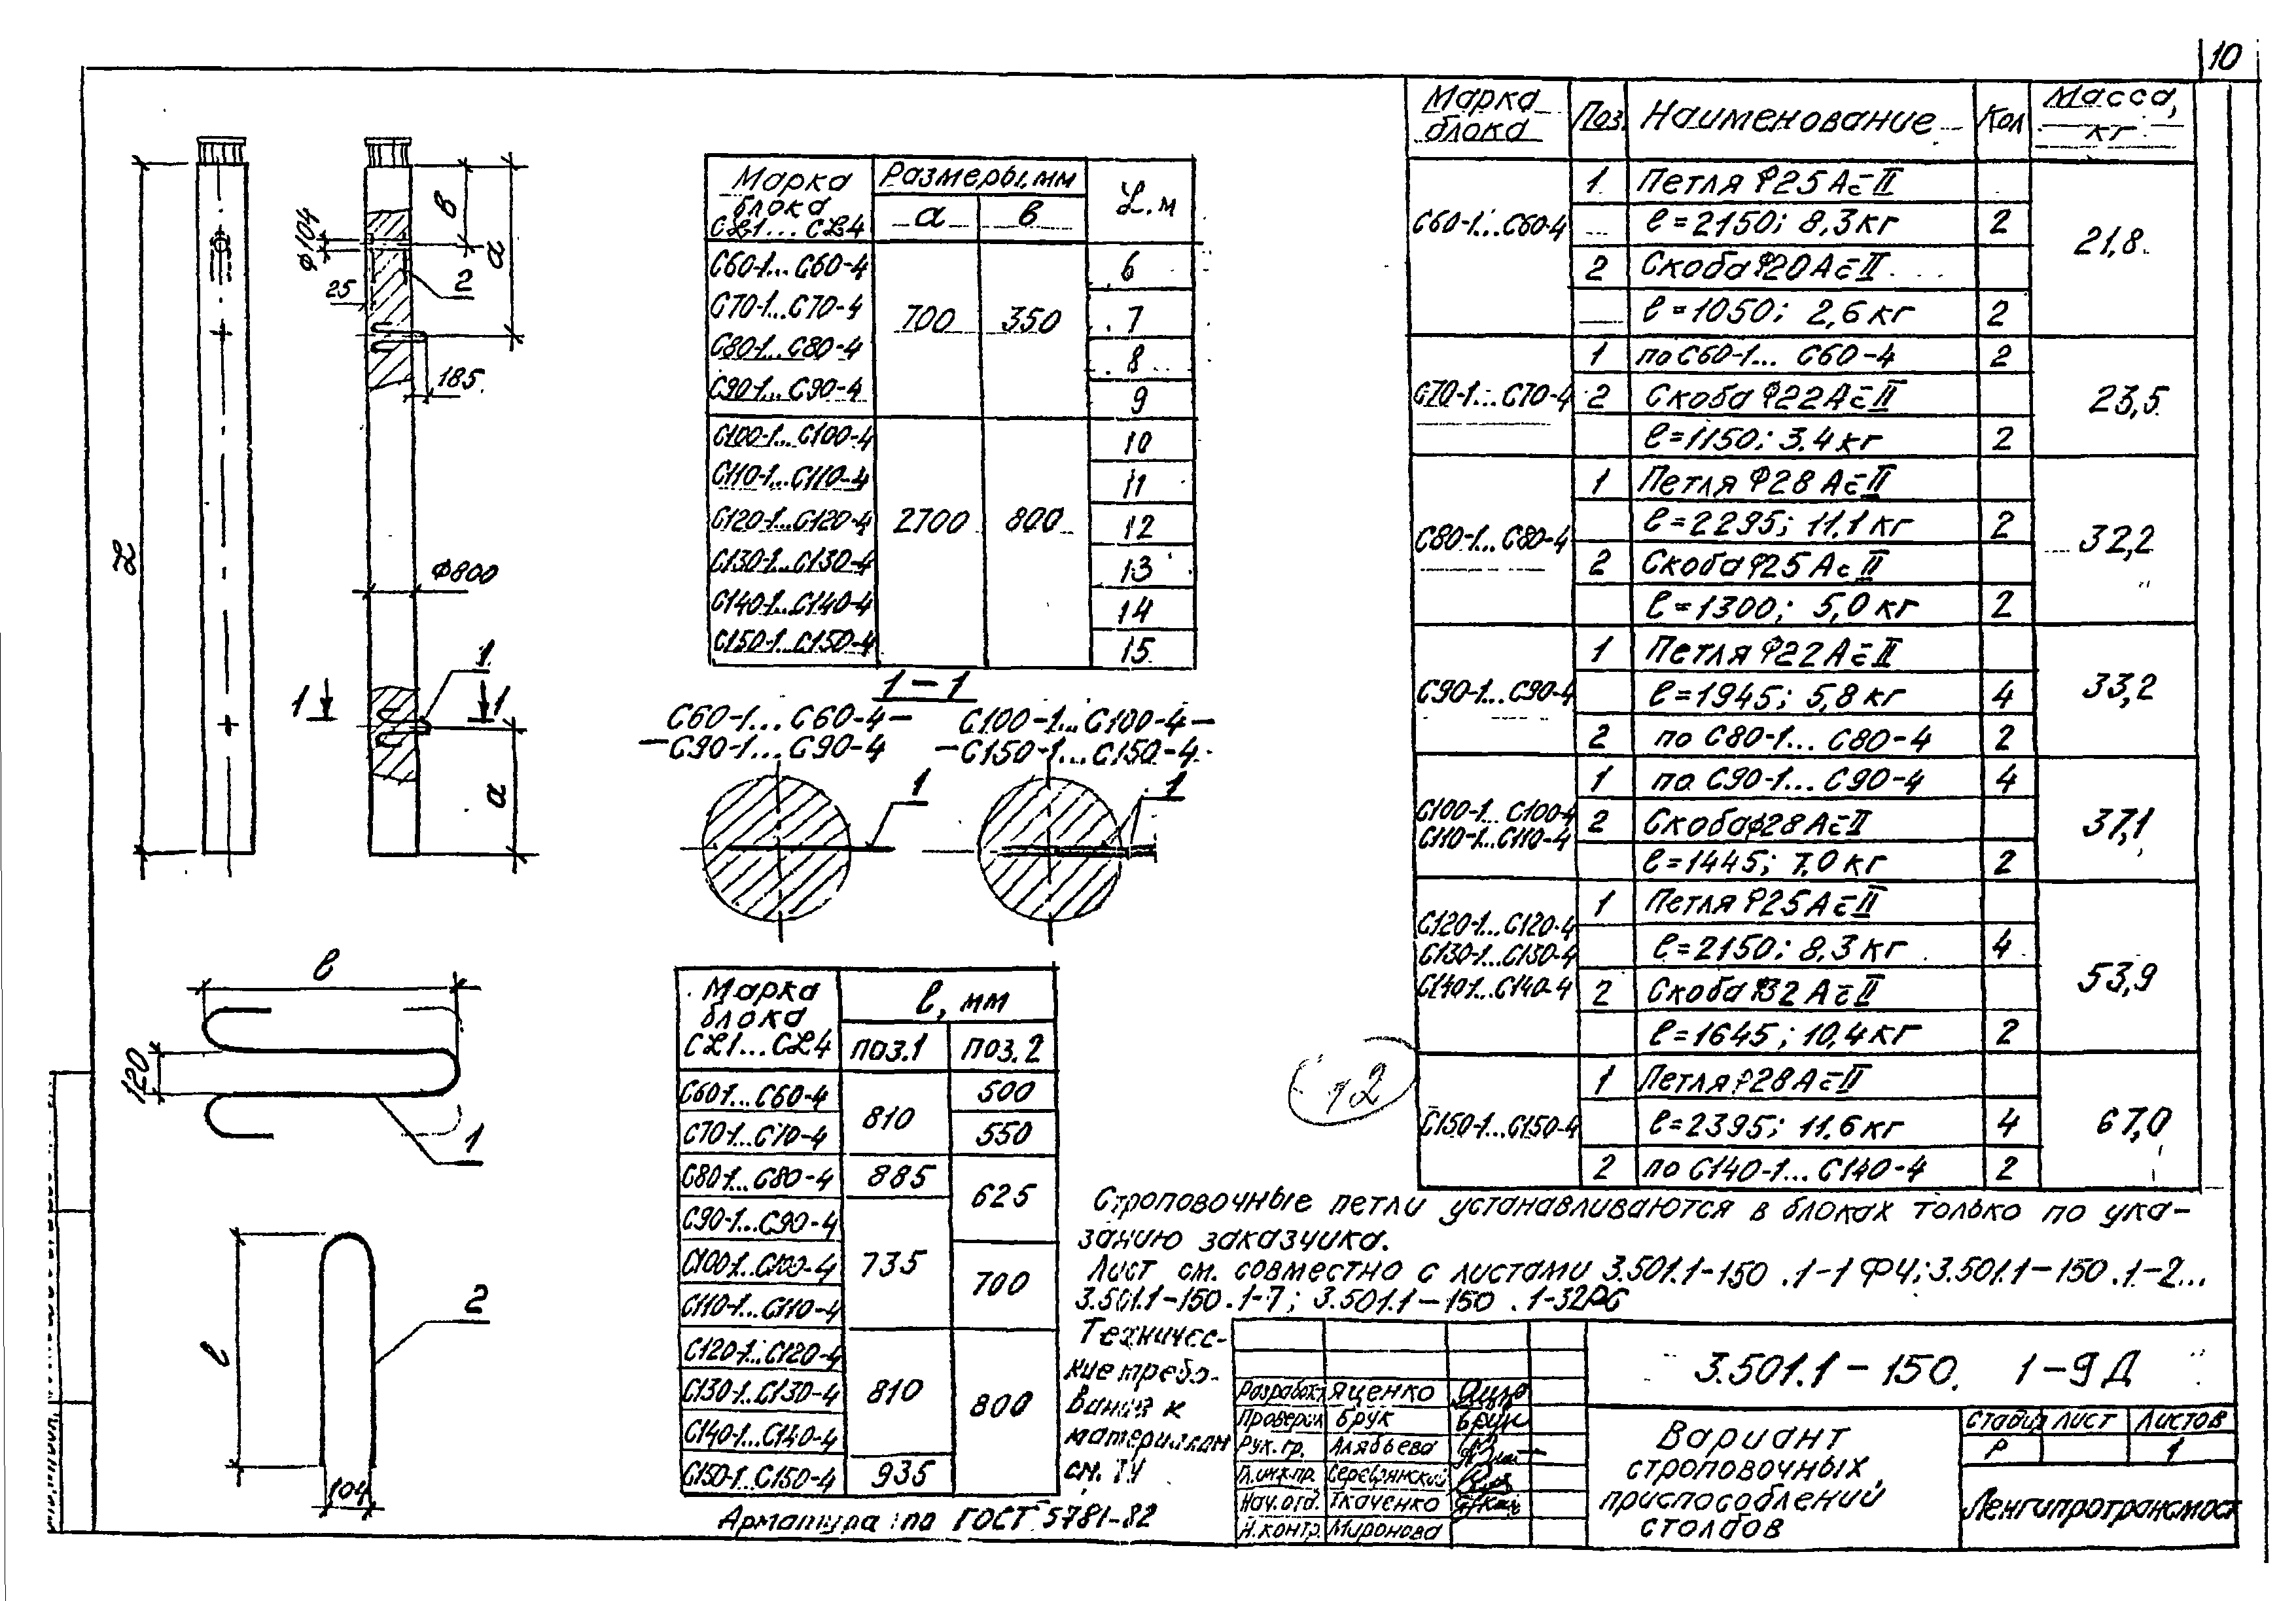 10
Марка блока СL1...СL4
Размеры, мм
а
в
L, м
С60-1...С60-4
6
С70-1...С70-4
700
350
7
С80-1...С80-4
8
С90-1...С90-4
9
С100-1...С100-4
10
С110-1...С110-4
11
С120-1...С120-4
2700
800
12
С130-1...С130-4
13
С140-1...С140-4
14
С150-1...С150-4
15
ф104
25
в
а
2
185
L
ф800
1
1
1
а
1-1
С60-1...С60-4-
-С90-1...С90-4
1
С100-1...С100-4-
-С150-1...С150-4
1
ℓ
120
1
ℓ
2
104
Марка блока СL1...СL4
ℓ, мм
поз.1
поз.2
С60-1...С60-4
810
500
С70-1...С70-4
550
С80-1...С80-4
885
625
С90-1...С90-4
735
С100-1...С100-4
700
С110-1...С110-4
С120-1...С120-4
810
800
С130-1...С130-4
С140-1...С140-4
С150-1...С150-4
935
Арматура по ГОСТ 5781-82
Марка блока
Поз.
Наименование
Кол
Масса, кг
С60-1...С60-4
1 Петля ф25 Ас-II
ℓ=2150; 8,3кг 2
21,8
2 Скоба ф20 Ас-II
ℓ=1050; 2,6 кг 2
С70-1...С70-4
1 по С60-1... С60-4 2
2 Скоба ф22 Ас-II
23,5
ℓ=1150; 3.4 кг 2
С80-1...С80-4
1 Петля ф28 Ас-II
ℓ=2295; 11.1 кг 2
32,2
2 Скоба ф25 Ас-II
ℓ=1300; 5,0 кг 2
С90-1...С90-4
1 Петля ф22 Ас-II
ℓ=1945; 5,8 кг 4
33,2
2 по С80-1... С80-4 2
С100-1...С100-4
С110-1...С110-4
1 по С90-1... С90-4 4
2 Скоба ф28 Ас-II
37,1
ℓ=1445; 7,0 кг 2
С120-1...С120-4
С130-1...С130-4
С140-1...С140-4
1 Петля ф25 Ас-II
ℓ=2150; 8.3 кг 4
53,9
2 Скоба ф32 Ас-II
ℓ=1645; 10,4 кг 2
С150-1...С150-4
1 Петля ф28 Ас-II
ℓ=2395; 11.6 кг 4
67,0
2 по С140-1... С140-4 2
12
Строповочные петли устанавливаются в блоках только по ука-
занию заказчика.
Лист см. совместно с листами 3.501.1-150 .1-1 ФЧ; 3.501.1-150 .1-2...
3.501.1-150 .1-7; 3.501.1-150 .1-32РС
Техничес-
кие требо-
вания к
материалам
см. ТУ
Разработ. Яценко
Проверил Брук
Рук. гр. Алябьева
Гл. инж. пр. Серебрянский
Нач. отд. Ткаченко
Н. контр. Миронова
3.501.1-150. 1-9Д
Вариант
строповочных
приспособлений
столбов
Стадия
Лист
Листов
Р
1
Ленгипротрансмост